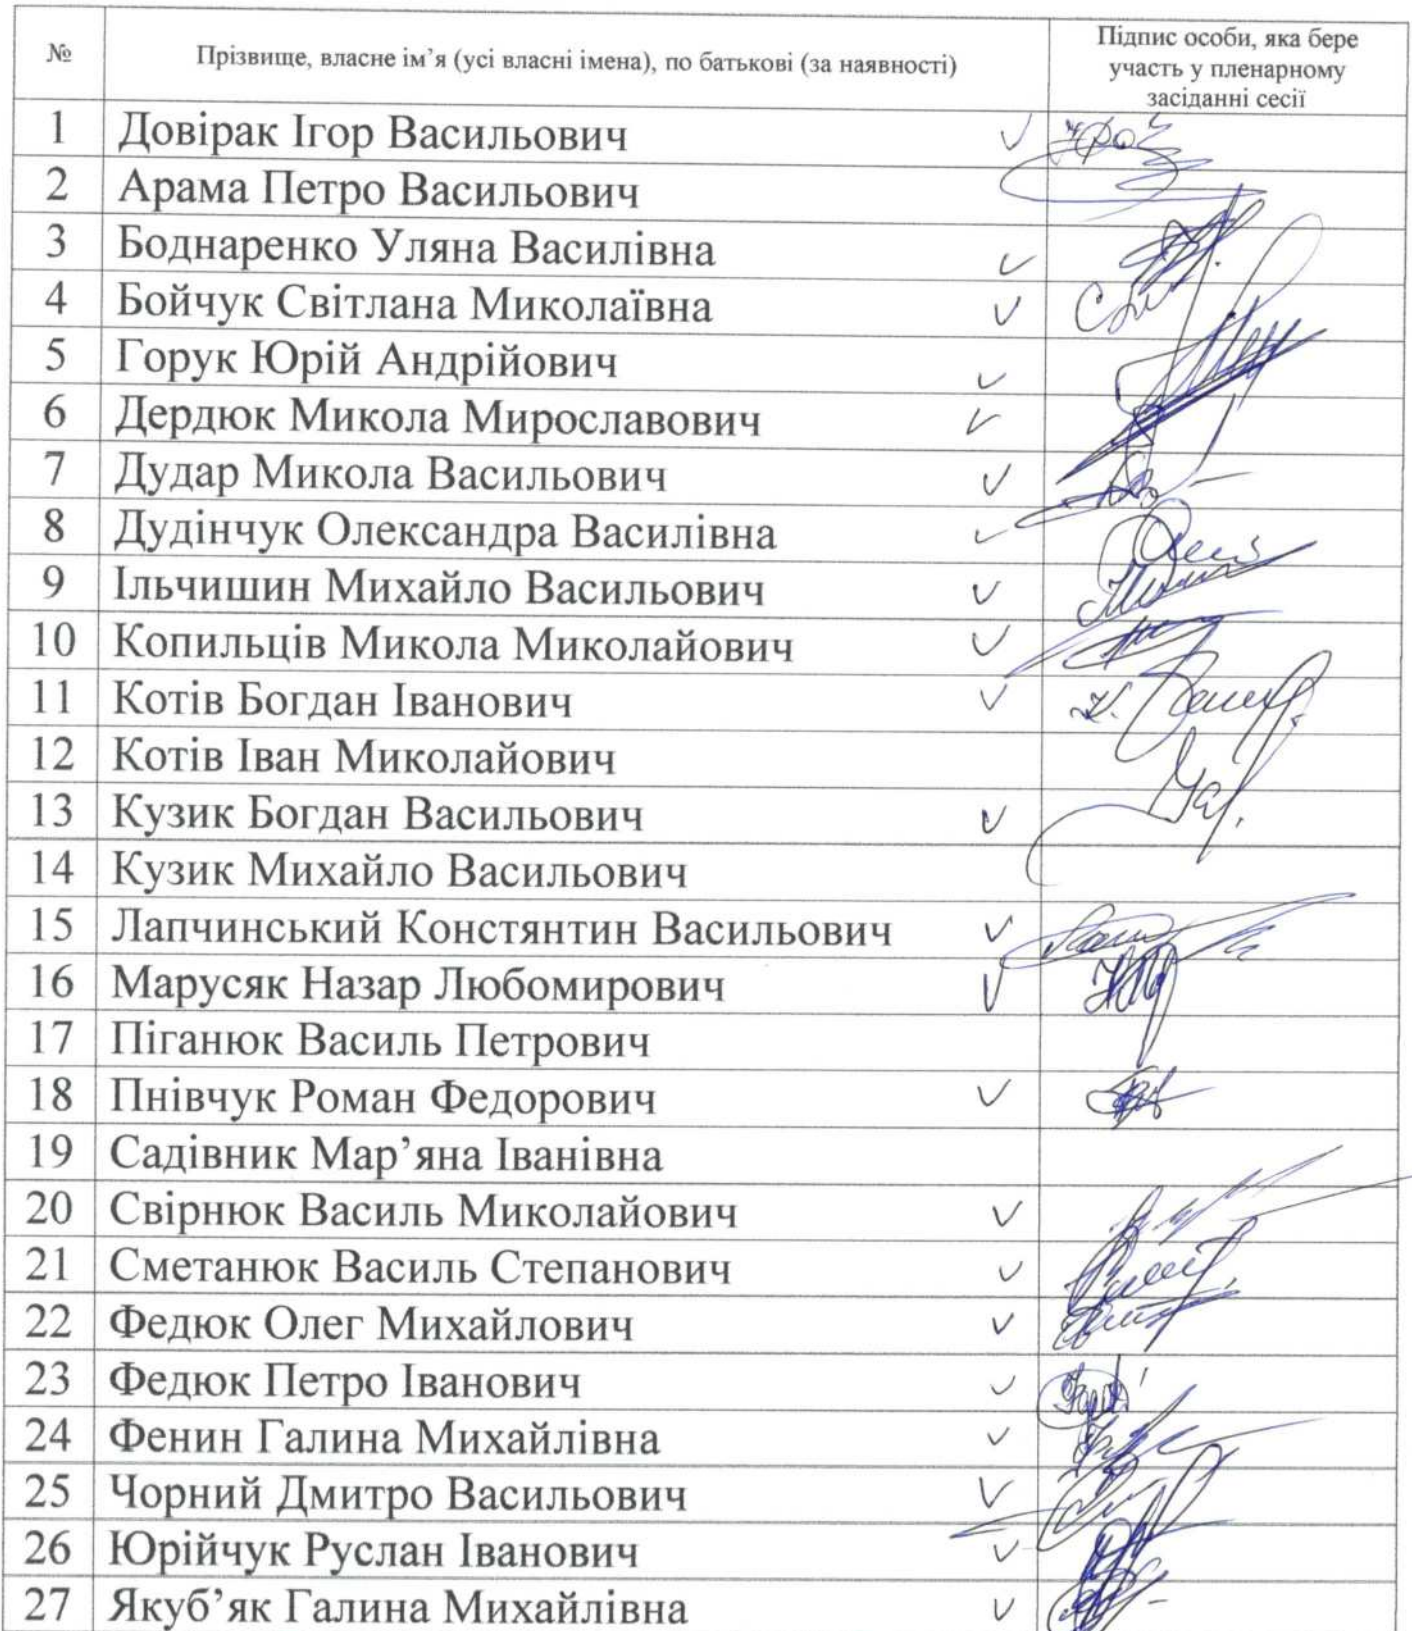 № Прізвище, власне ім’я (усі власні імена), по батькові (за наявності) Підпис особи, яка бере
участь у пленарному
засіданні сесії
1 Довірак Ігор Васильович
2 Арама Петро Васильович
3 Боднаренко Уляна Василівна
4 Бойчук Світлана Миколаївна
5 Горук Юрій Андрійович
6 Дердюк Микола Мирославович
7 Дудар Микола Васильович
8 Дудінчук Олександра Василівна
9 Ільчишин Михайло Васильович
10 Копильців Микола Миколайович
11 Котів Богдан Іванович
12 Котів Іван Миколайович
13 Кузик Богдан Васильович
14 Кузик Михайло Васильович
15 Лапчинський Констянтин Васильович
16 Марусяк Назар Любомирович
17 Піганюк Василь Петрович
18 Пнівчук Роман Федорович
19 Садівник Мар’яна Іванівна
20 Свірнюк Василь Миколайович
21 Сметанюк Василь Степанович
22 Федюк Олег Михайлович
23 Федюк Петро Іванович
24 Фенин Галина Михайлівна
25 Чорний Дмитро Васильович
26 Юрійчук Руслан Іванович
27 Якуб’як Галина Михайлівна